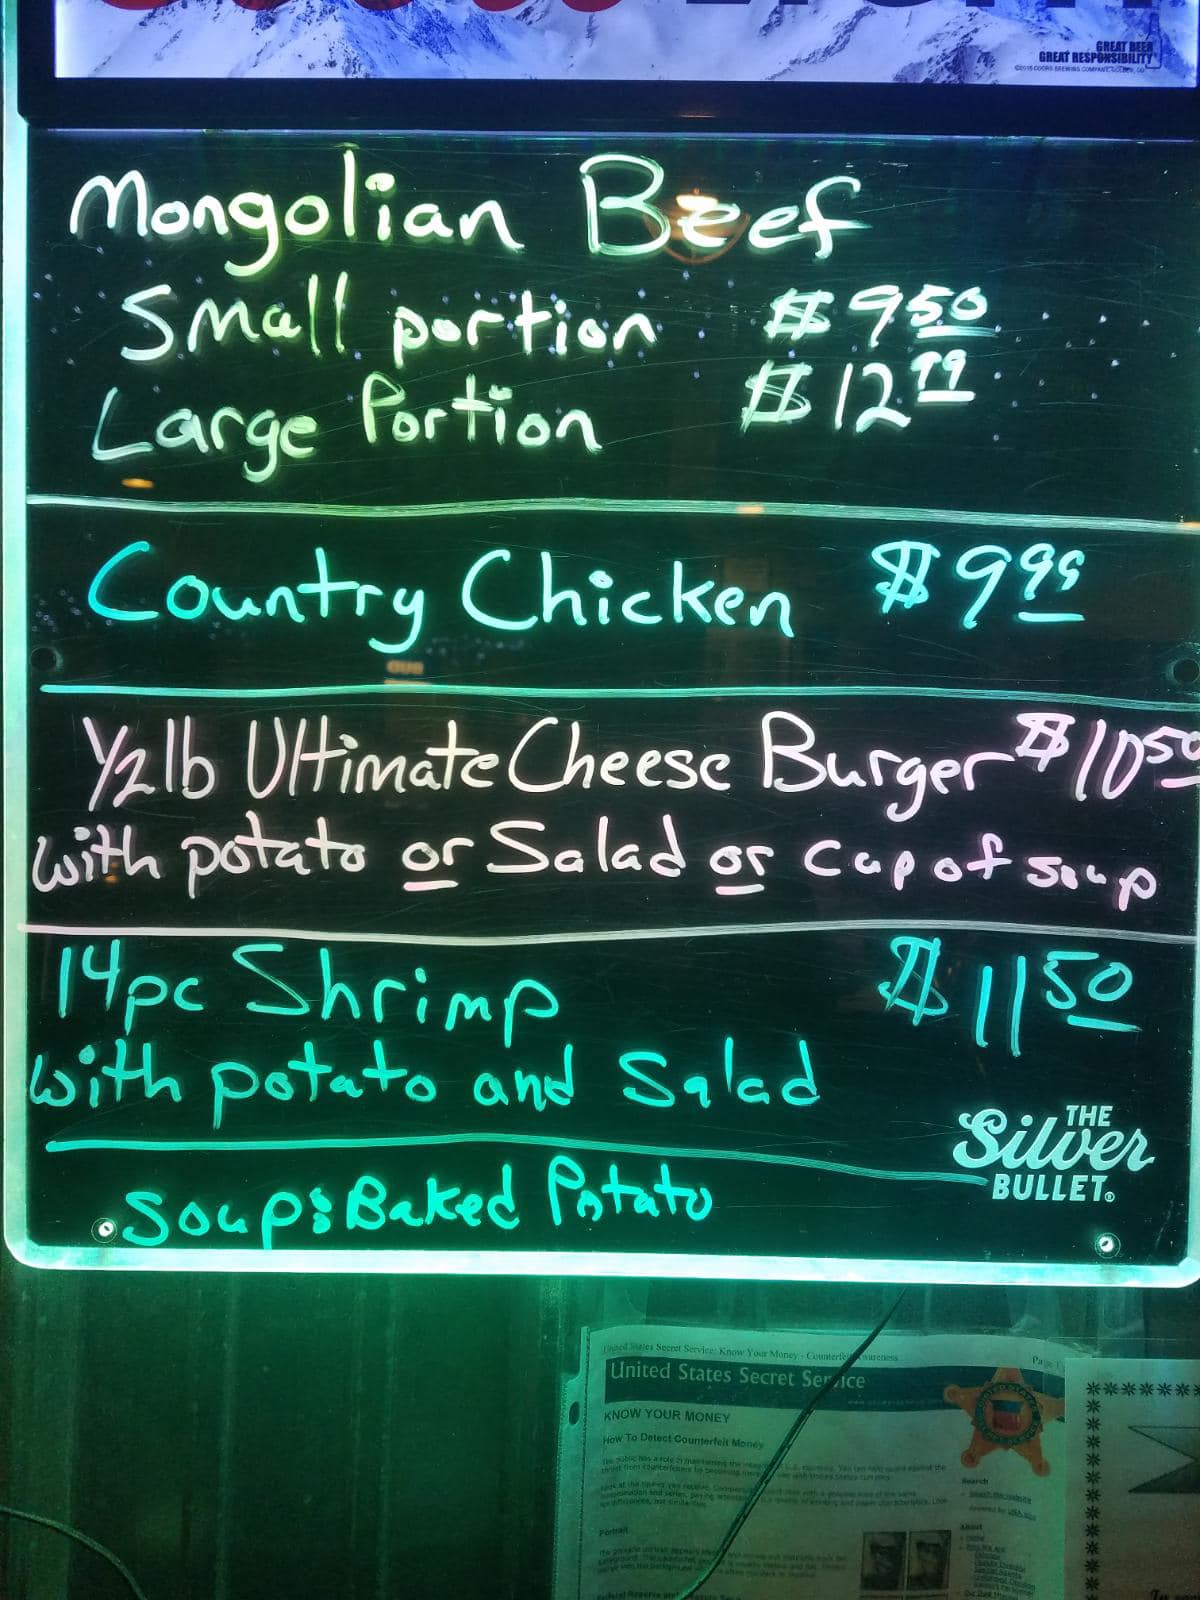 GREAT BEER
GREAT RESPONSIBILITY
©2015 COORS BREWING COMPANY, GOLDEN, CO
Mongolian Beef
Small portion $9.50
Large Portion $12.99
Country Chicken $9.99
1/2 lb Ultimate Cheese Burger $10.50
with potato or Salad or Cup of soup
14pc Shrimp $11.50
with potato and Salad
THE
Silver
BULLET®
Soup: Baked Potato
United States Secret Service: Know Your Money - Counterfeit Awareness
United States Secret Service
KNOW YOUR MONEY
How To Detect Counterfeit Money
Search
Portrait
About